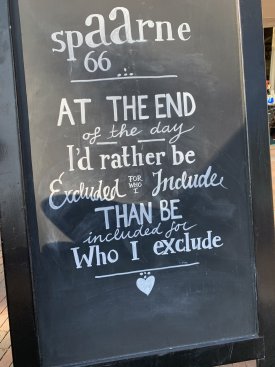 spaarne
66
AT THE END
of the day
I'd rather be
Excluded FOR WHO I Include
THAN BE
included for
Who I exclude